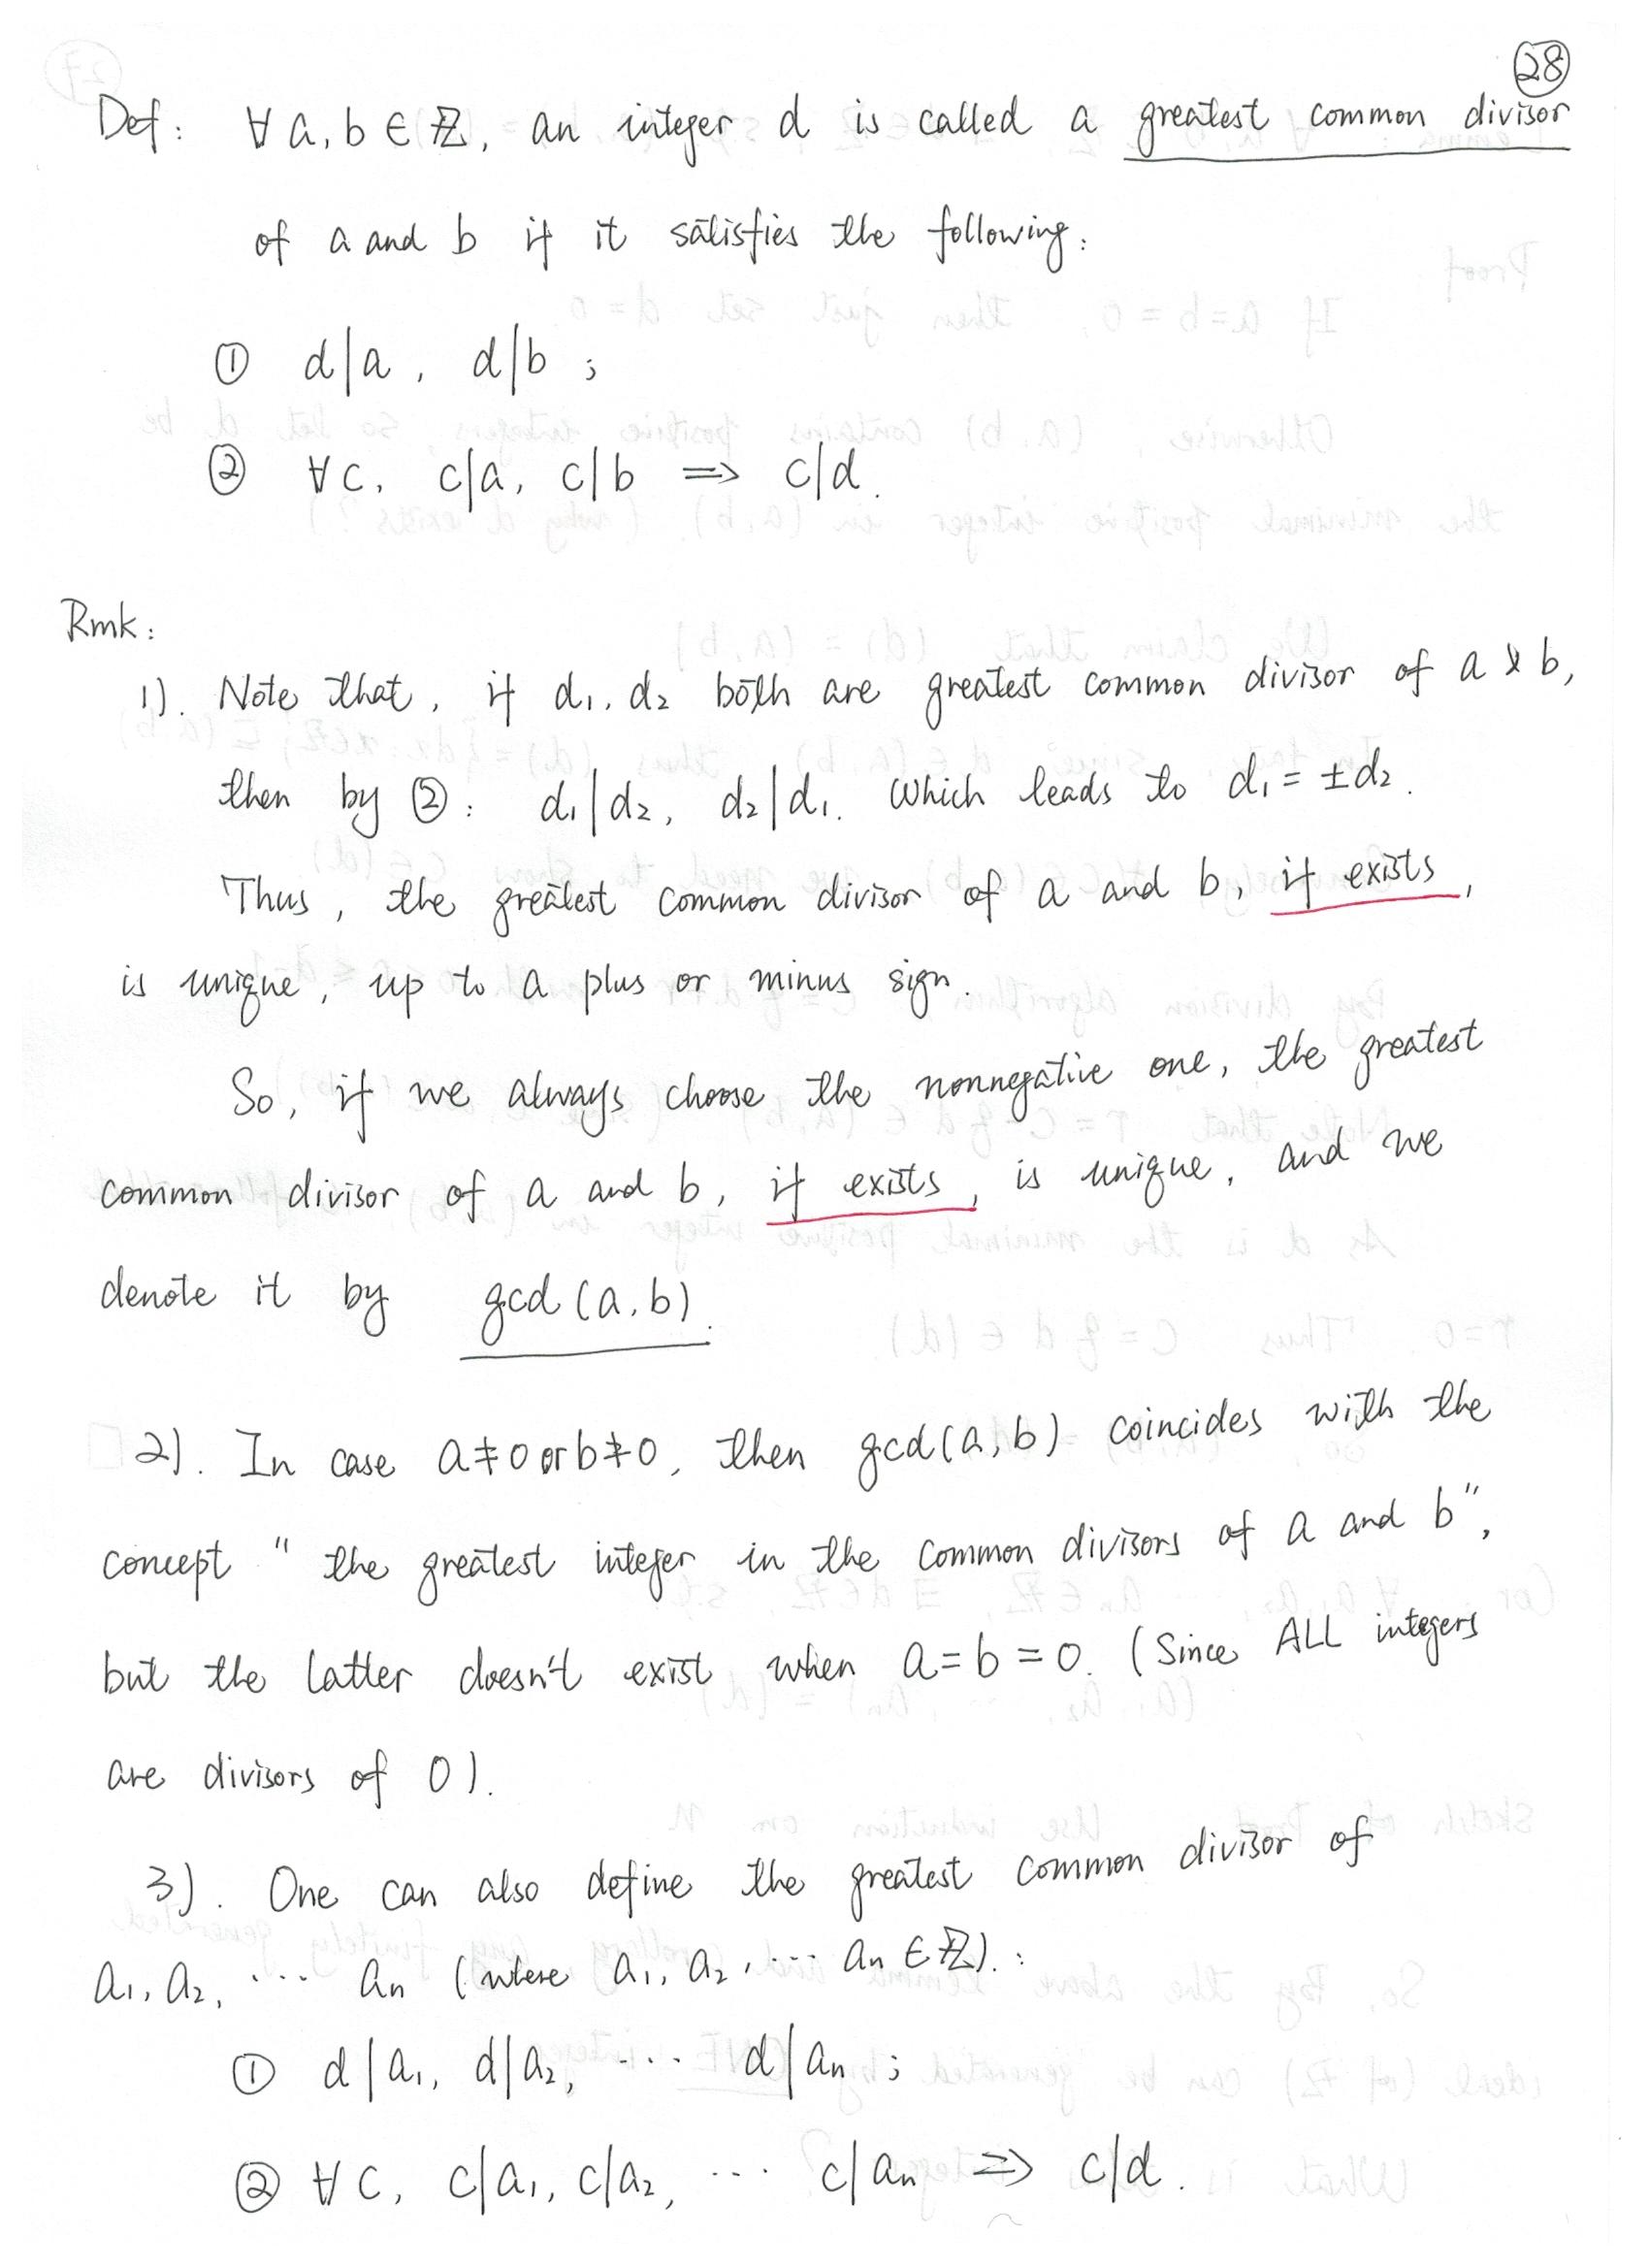 28
Def: ∀ a, b ∈ ℤ, an integer d is called a greatest common divisor
of a and b if it satisfies the following:
① d|a, d|b ;
② ∀c, c|a, c|b ⟹ c|d.
Rmk:
1). Note that, if d₁, d₂ both are greatest common divisor of a & b,
then by ②: d₁|d₂, d₂|d₁. Which leads to d₁ = ±d₂.
Thus, the greatest common divisor of a and b, if exists,
is unique, up to a plus or minus sign.
So, if we always choose the nonnegative one, the greatest
common divisor of a and b, if exists, is unique, and we
denote it by gcd(a,b).
2). In case a≠0 or b≠0, then gcd(a,b) coincides with the
concept "the greatest integer in the common divisors of a and b",
but the latter doesn't exist when a=b=0. (Since ALL integers
are divisors of 0).
3). One can also define the greatest common divisor of
a₁, a₂, ... aₙ (where a₁, a₂, ... aₙ ∈ ℤ). :
① d|a₁, d|a₂, ... d|aₙ ;
② ∀c, c|a₁, c|a₂, ... c|aₙ ⟹ c|d.